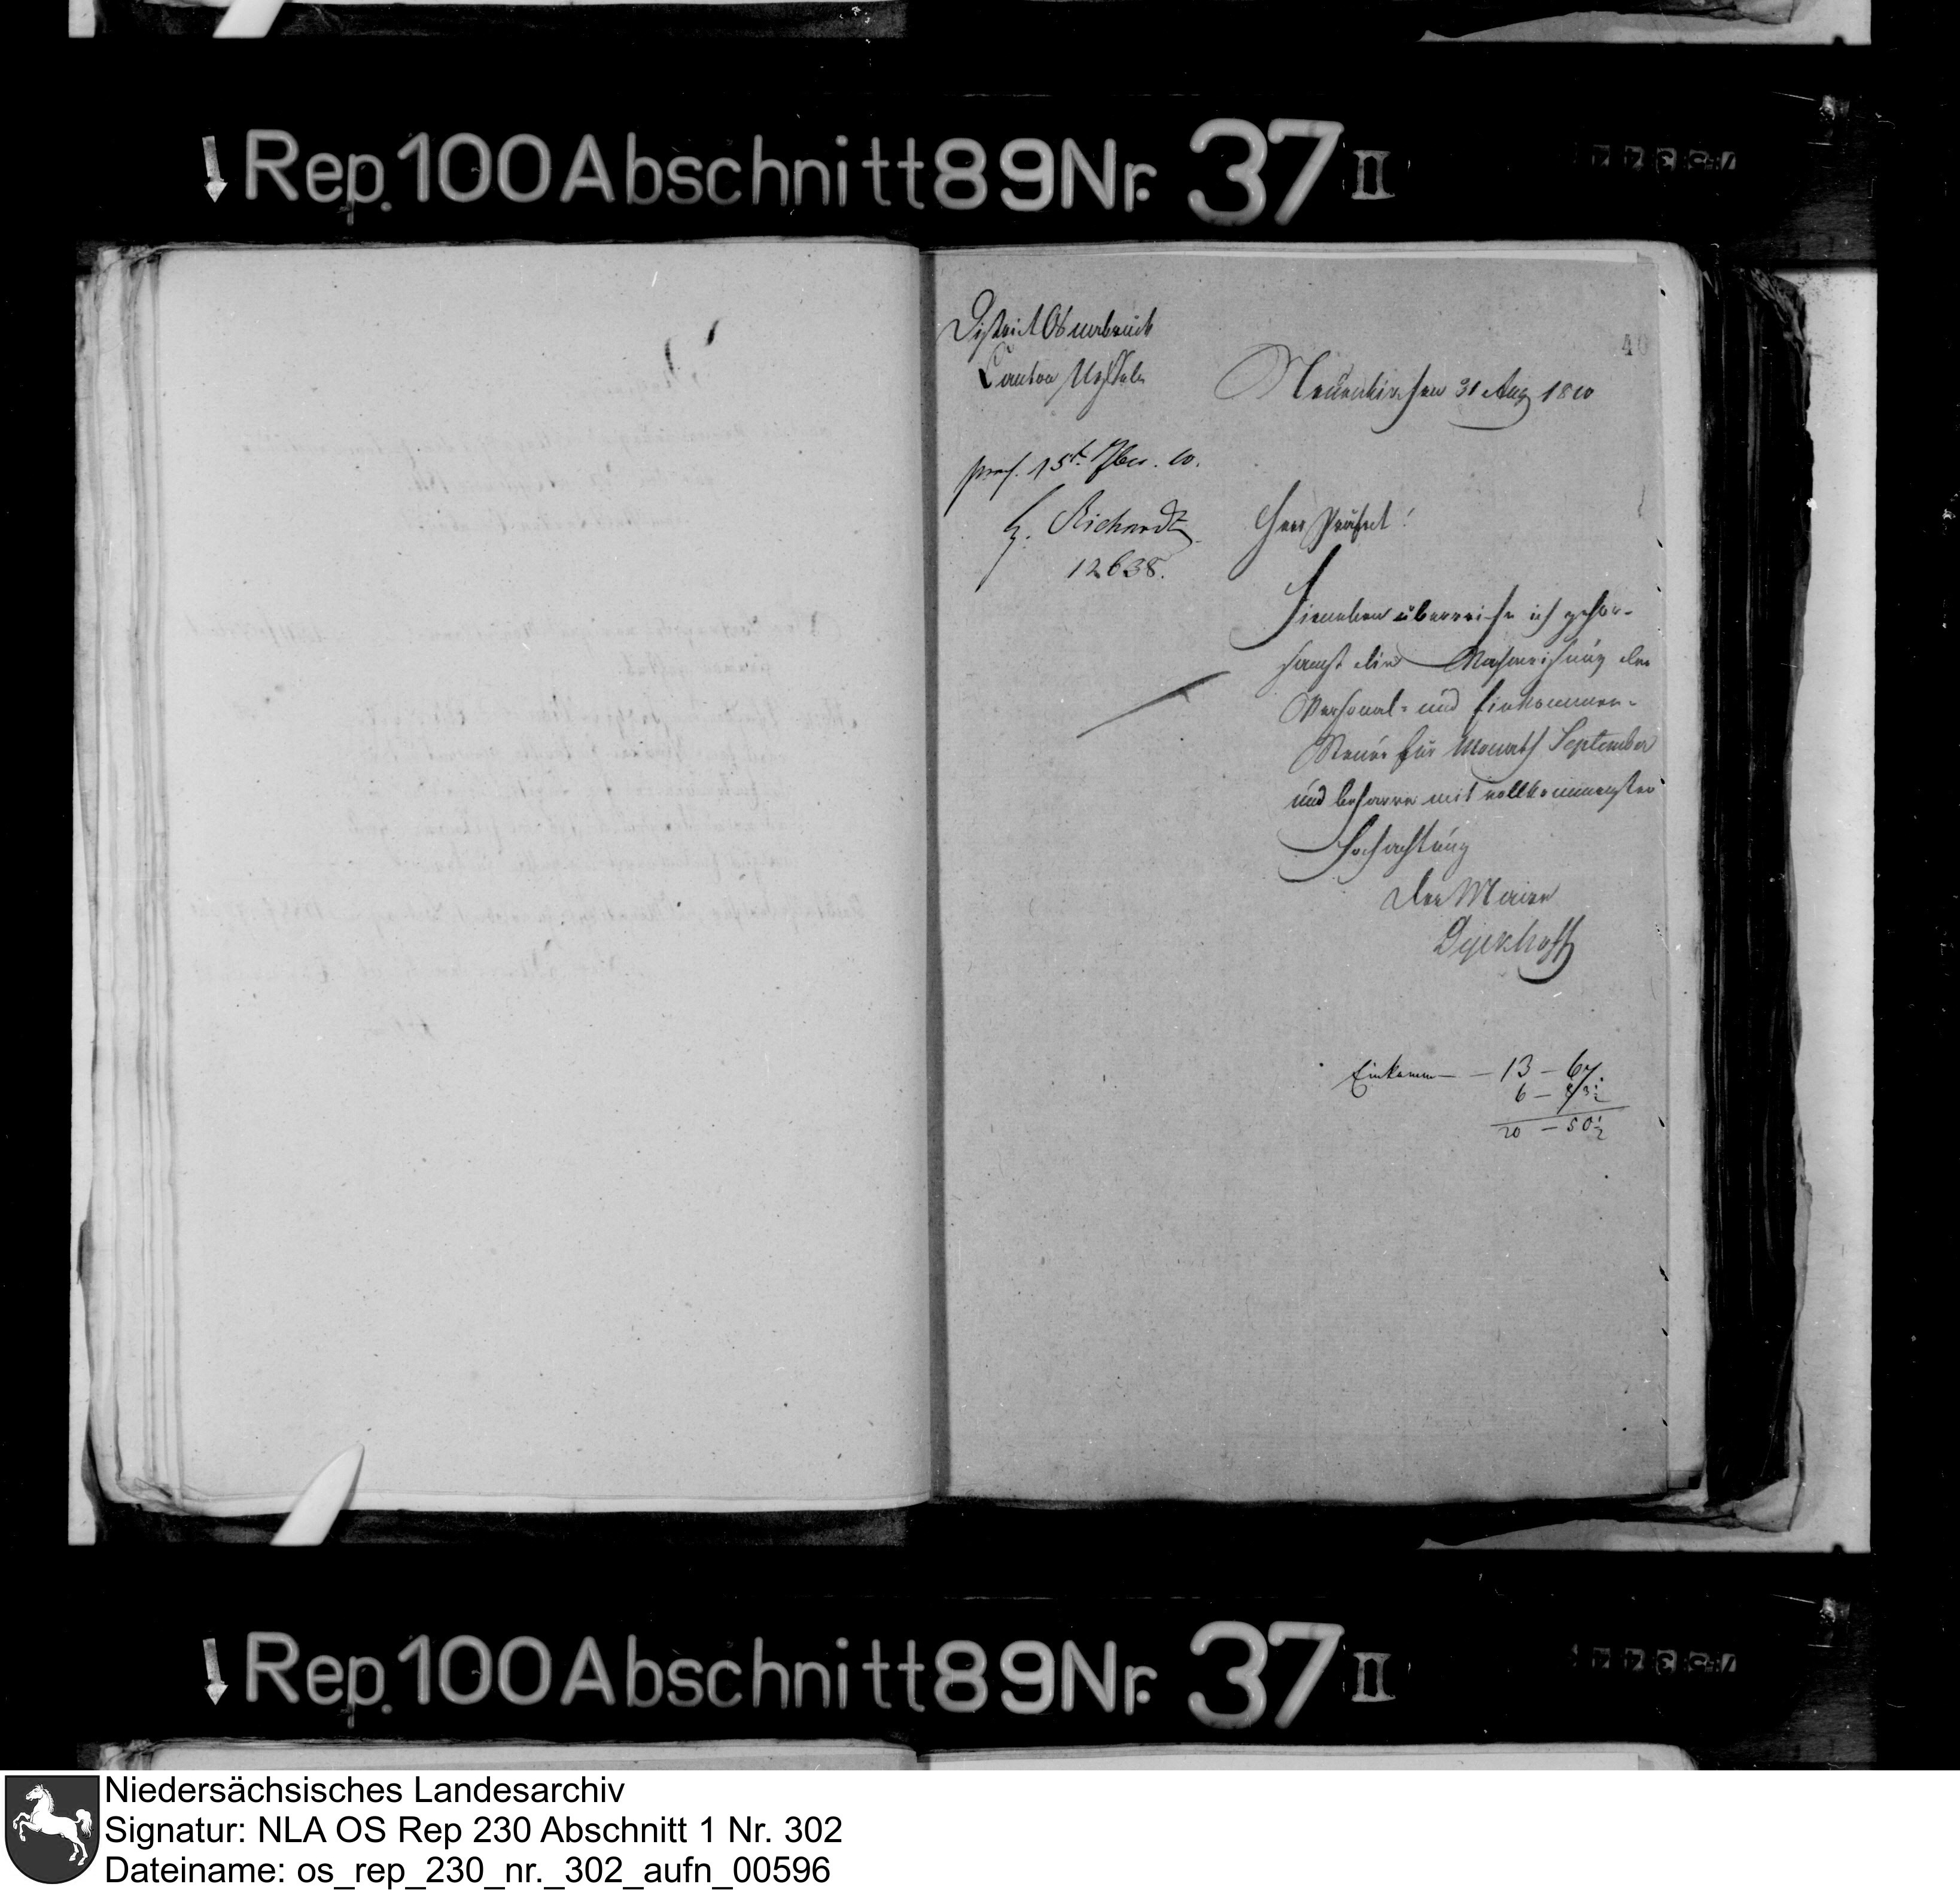 Rep. 100 Abschnitt 89 Nr. 37 II
40
District Osnabrück
Canton Ueffeln
Neuenkirchen 31 Aug 1810
prs. 15t. 7ber. 10.
Richardtz
12638.
Herr Präfect!
Hieneben überreiche ich gehor-
samst die Nachweisung der
Personal- und Einkommen-
Steuer für Monath September
und beharre mit vollkommenster
Hochachtung
Der Maire
Dyckhoff
Einkomm — 13 — 67.
6 — 83½
20 — 50½
Rep. 100 Abschnitt 89 Nr. 37 II
Niedersächsisches Landesarchiv
Signatur: NLA OS Rep 230 Abschnitt 1 Nr. 302
Dateiname: os_rep_230_nr._302_aufn_00596